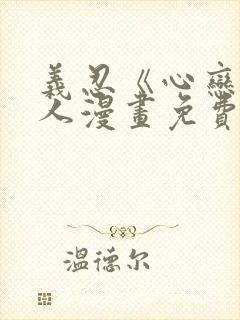 義忍《心戀
人漫畫免費
溫德尔